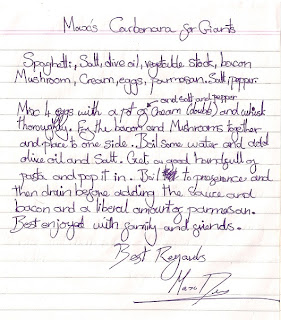 Maxo's Carbonara for Giants
Spaghetti, Salt, olive oil, vegetable stock, bacon
Mushroom, Cream, eggs, parmesan. Salt, pepper.
and salt and pepper
Mix 4 eggs with a pot of cream (double) and whisk
thoroughly. Fry the bacon and Mushrooms together
and place to one side.. Boil some water and add
olive oil and Salt. Get a good handful of
pasta and pop it in. Boil to preference and
then drain before adding the sauce and
bacon and a liberal amount of parmesan.
Best enjoyed with family and friends.
Best Regards